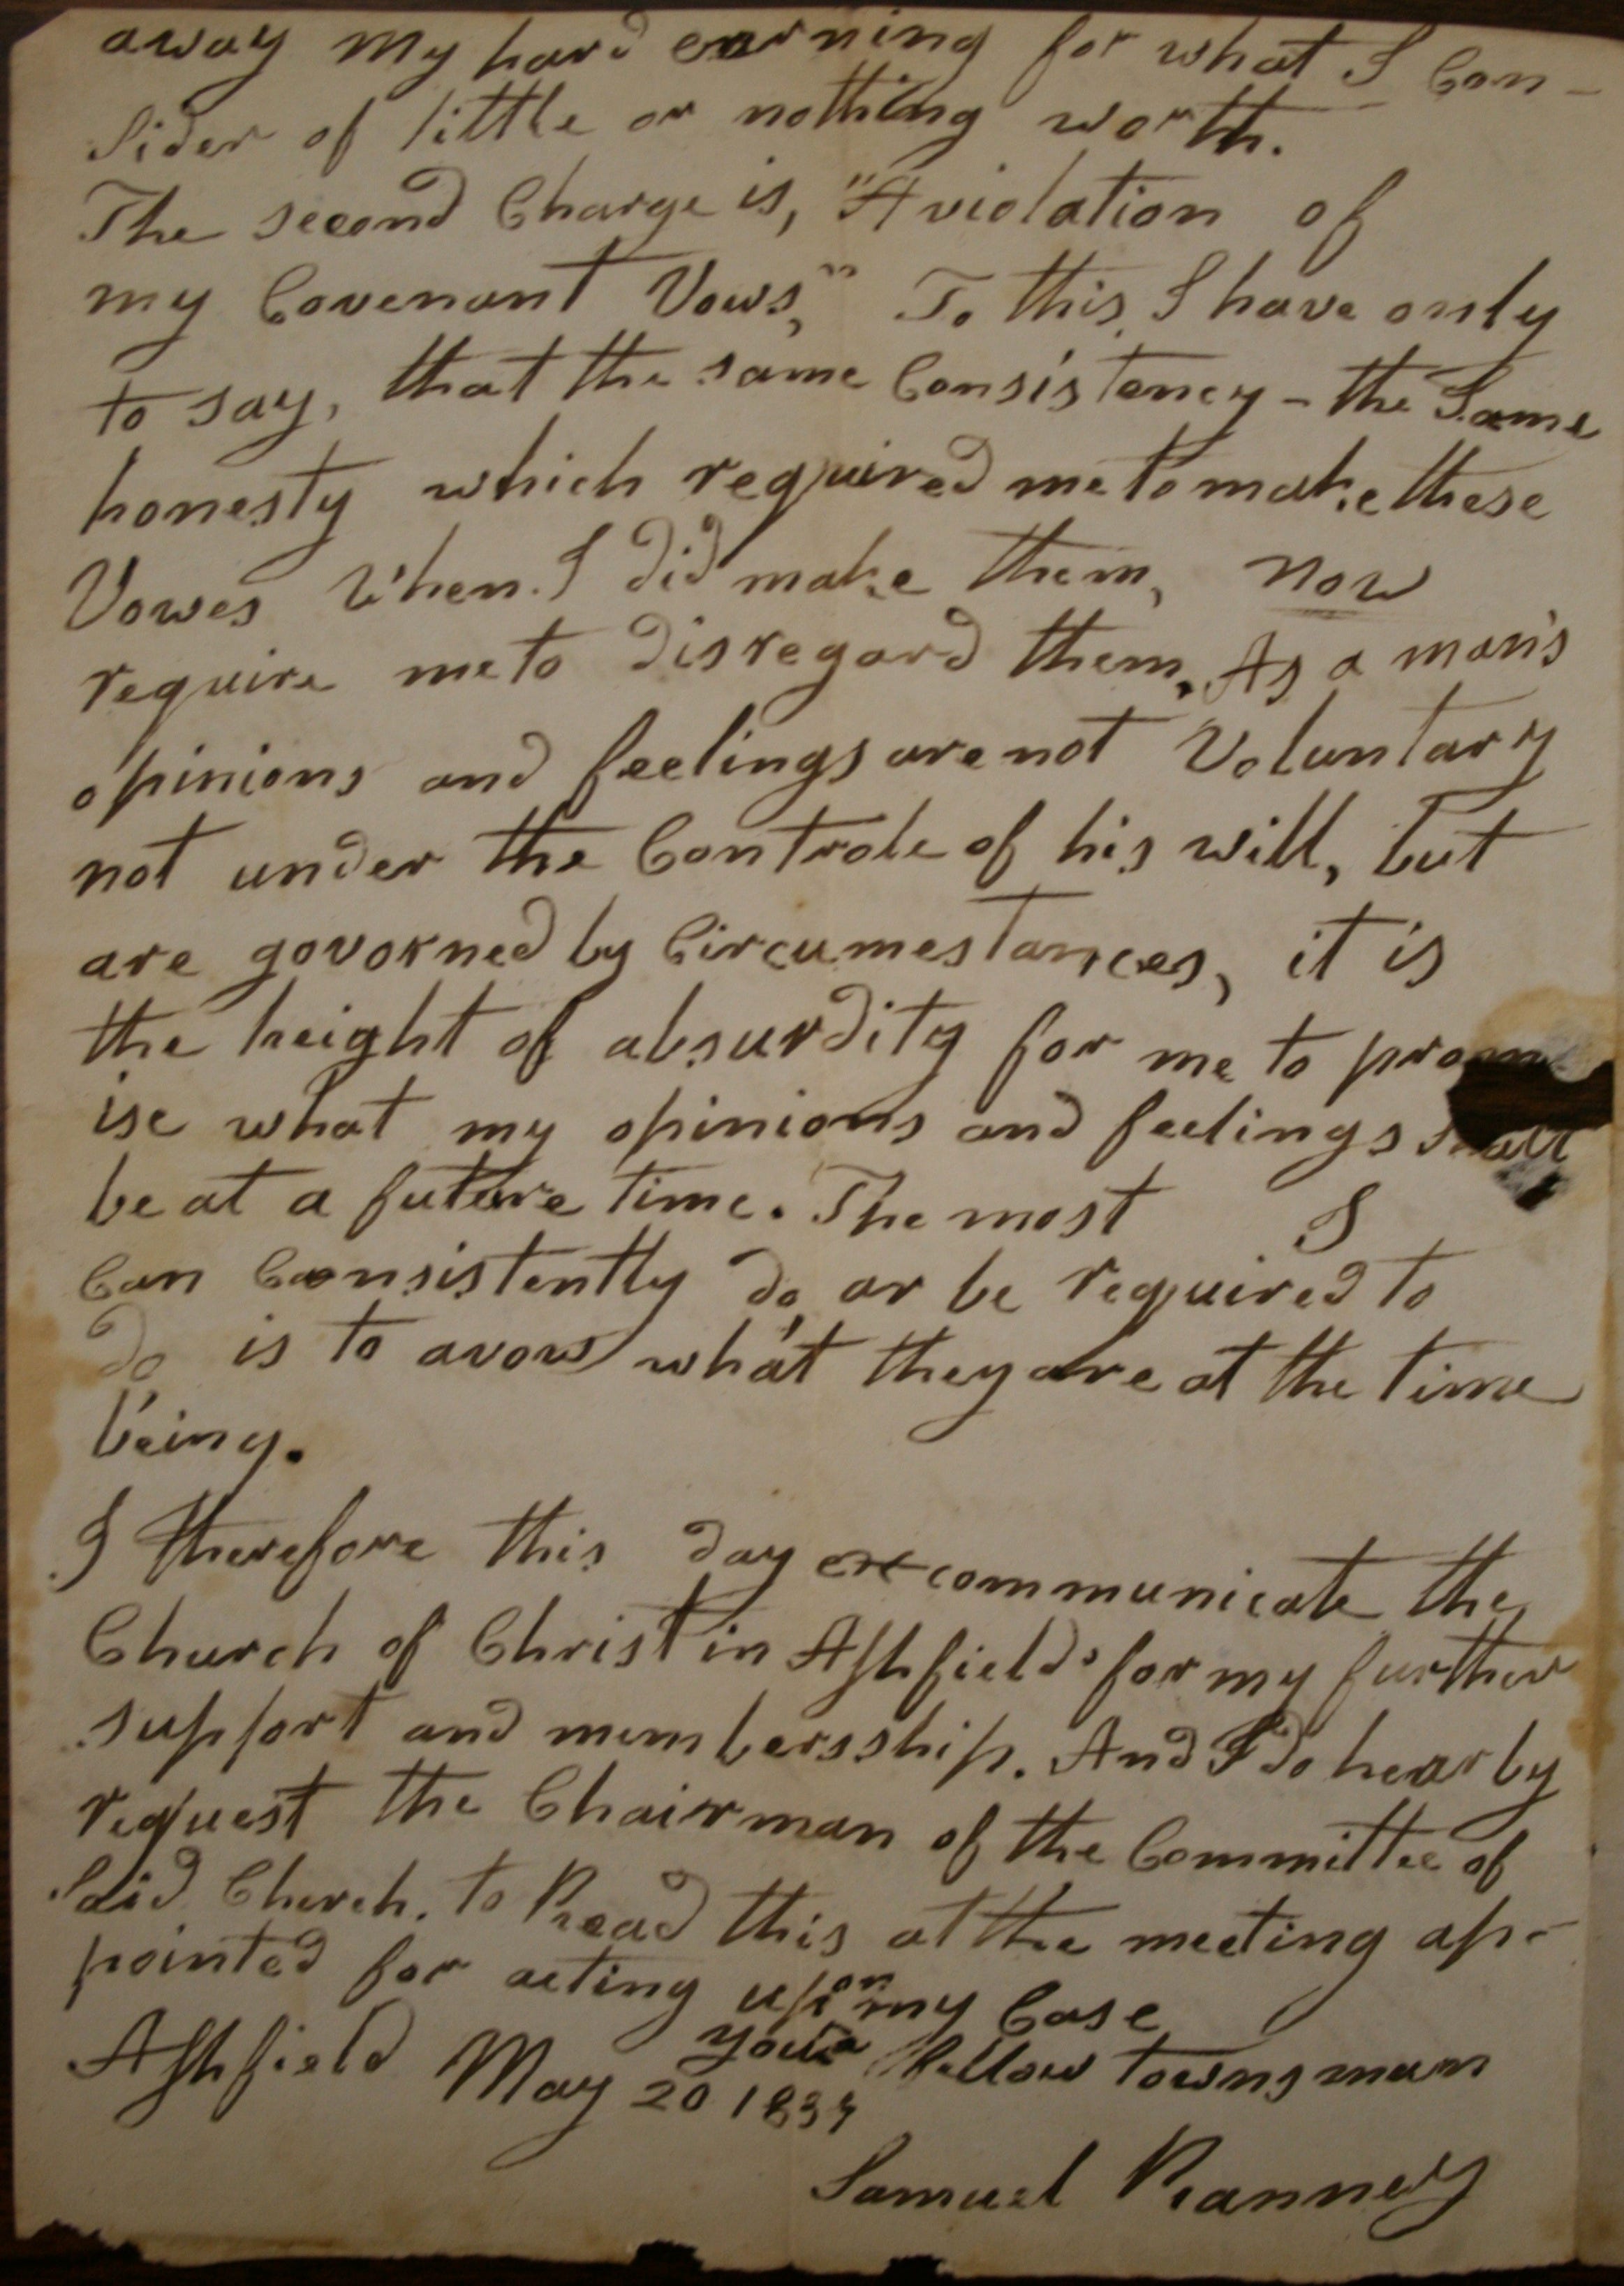 away my hard earning for what I Con-
sider of little or nothing worth.
The second Charge is, "A violation of
my Covenant Vows," To this, I have only
to say, that the same Consistency - the Same
honesty which required me to make these
Vowes when I did make them, now
require me to disregard them. As a man's
opinions and feelings are not Voluntary
not under the Controle of his will, but
are govorned by Circumestances, it is
the height of absurdity for me to prom
ise what my opinions and feelings shall
be at a future time. The most I
Can Consistently do, or be required to
do is to avow what they are at the time
being.
I therefore this day excommunicate the
Church of Christ in Ashfield for my further
support and membersship. And I do hearby
request the Chairman of the Committee of
Said Church. to Read this at the meeting ap-
pointed for acting upon my Case
your fellow townsman
Ashfield May 20
Samuel Ranney